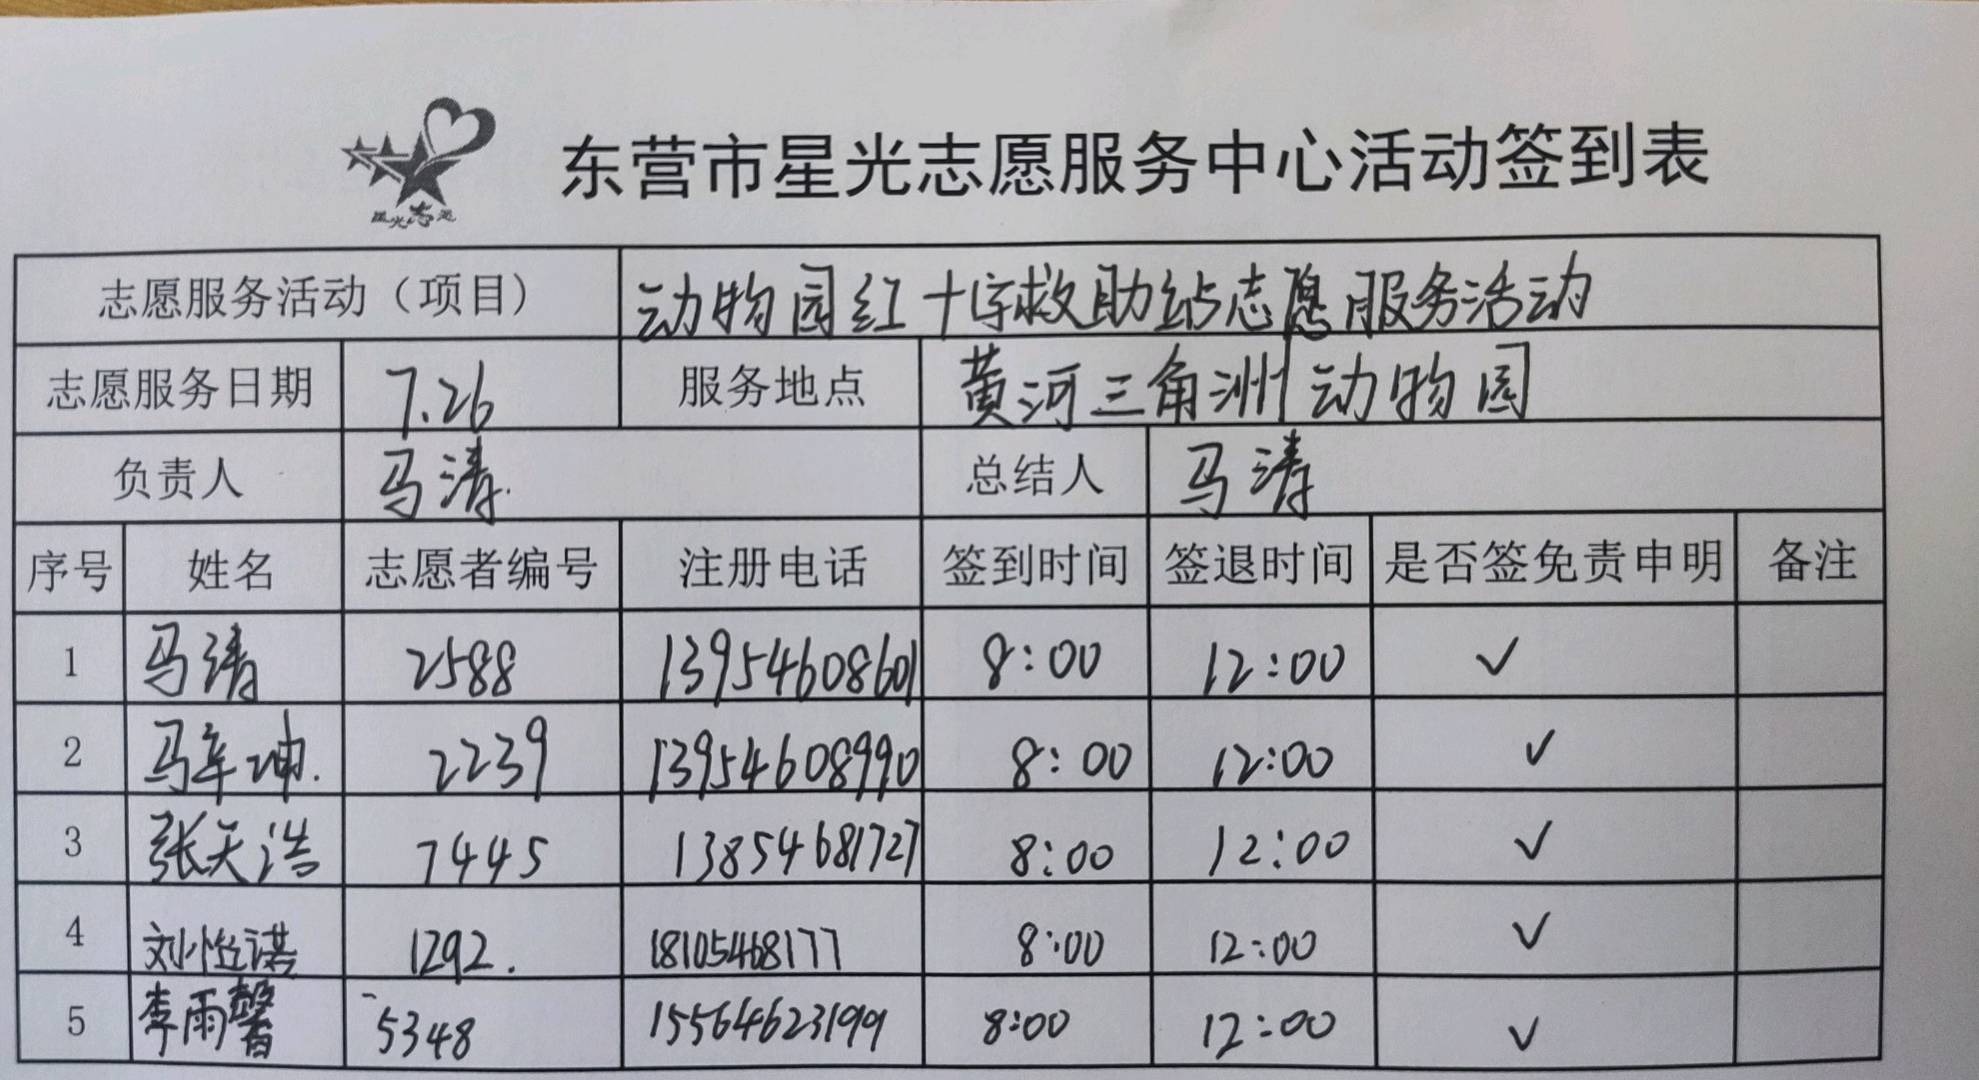 星光志愿
东营市星光志愿服务中心活动签到表
志愿服务活动（项目） 动物园红十字救助站志愿服务活动
志愿服务日期 7.26 服务地点 黄河三角洲动物园
负责人 马涛 总结人 马涛
序号 姓名 志愿者编号 注册电话 签到时间 签退时间 是否签免责申明 备注
1 马涛 2588 13954608601 8:00 12:00 ✓
2 马 坤 2239 13954608990 8:00 12:00 ✓
3 张天浩 7445 13854681727 8:00 12:00 ✓
4 刘 诺 1292 18105468177 8:00 12:00 ✓
5 李雨馨 5348 15564623199 8:00 12:00 ✓